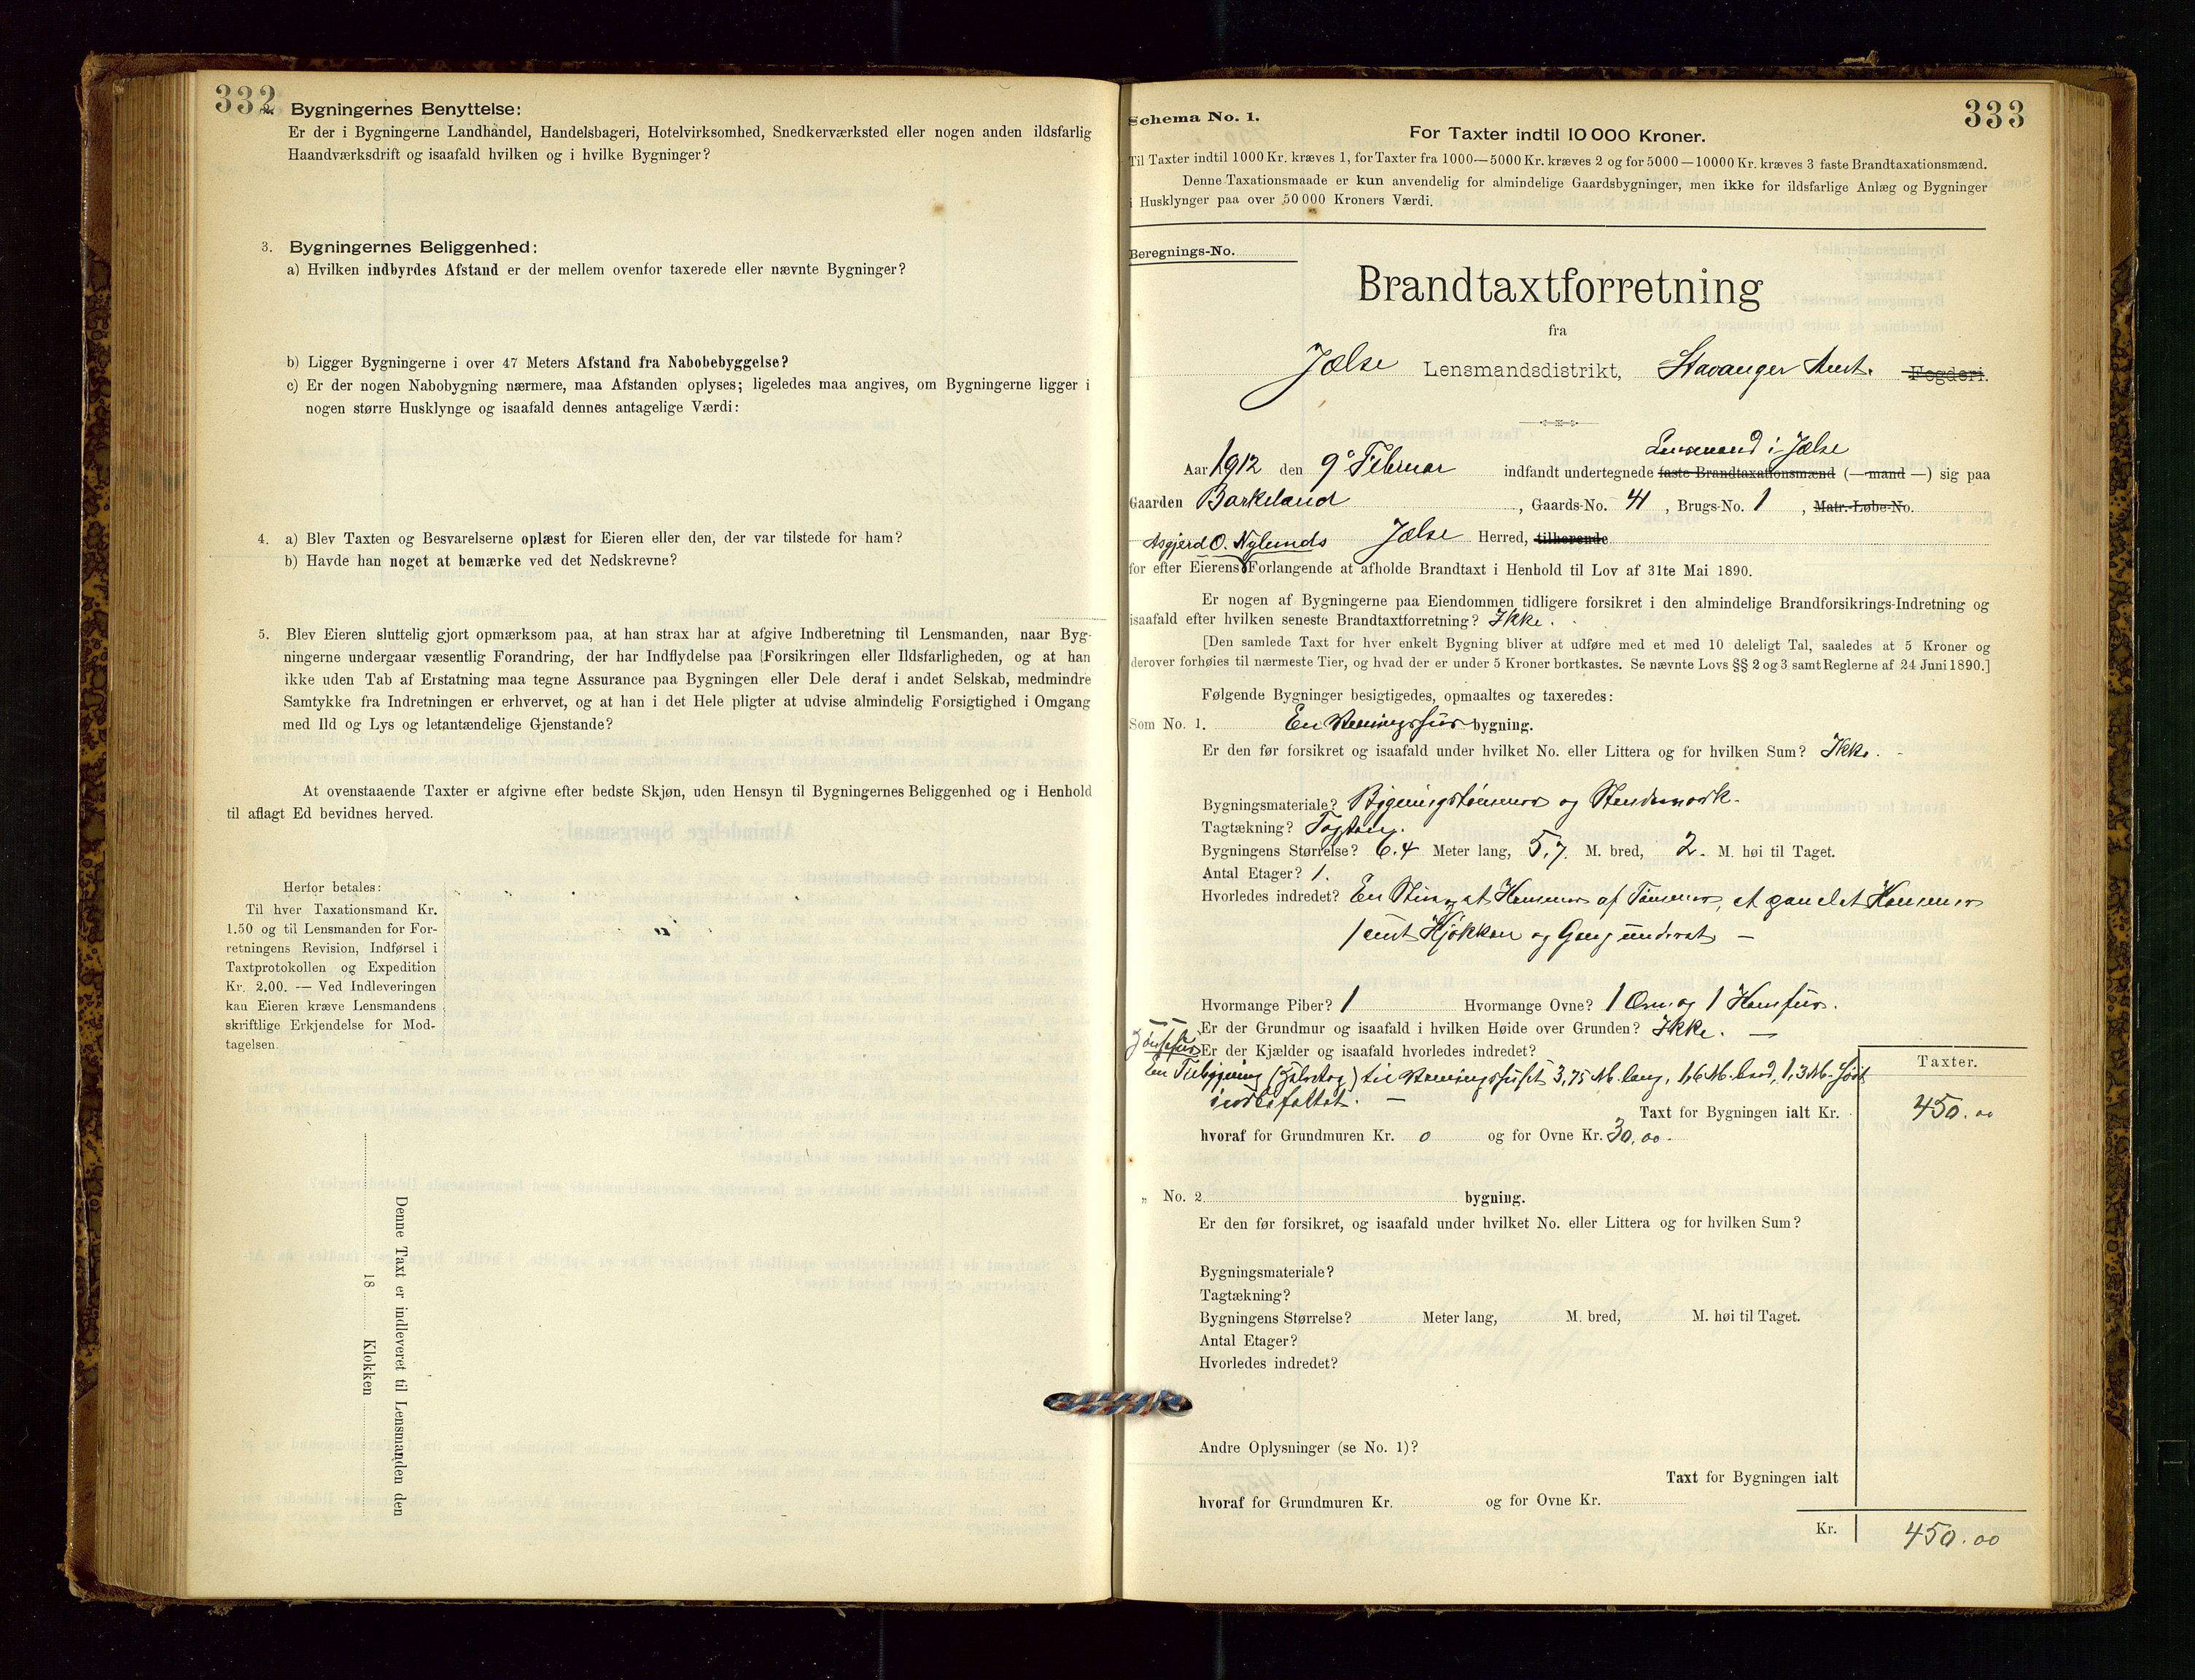 332
2. Bygningernes Benyttelse:
Er der i Bygningerne Landhandel, Handelsbageri, Hotelvirksomhed, Snedkerværksted eller nogen anden ildsfarlig
Haandværksdrift og isaafald hvilken og i hvilke Bygninger?
3. Bygningernes Beliggenhed:
a) Hvilken indbyrdes Afstand er der mellem ovenfor taxerede eller nævnte Bygninger?
b) Ligger Bygningerne i over 47 Meters Afstand fra Nabobebyggelse?
c) Er der nogen Nabobygning nærmere, maa Afstanden oplyses; ligeledes maa angives, om Bygningerne ligger i
nogen større Husklynge og isaafald dennes antagelige Værdi:
4. a) Blev Taxten og Besvarelserne oplæst for Eieren eller den, der var tilstede for ham?
b) Havde han noget at bemærke ved det Nedskrevne?
5. Blev Eieren sluttelig gjort opmærksom paa, at han strax har at afgive Indberetning til Lensmanden, naar Byg-
ningerne undergaar væsentlig Forandring, der har Indflydelse paa Forsikringen eller Ildsfarligheden, og at han
ikke uden Tab af Erstatning maa tegne Assurance paa Bygningen eller Dele deraf i andet Selskab, medmindre
Samtykke fra Indretningen er erhvervet, og at han i det Hele pligter at udvise almindelig Forsigtighed i Omgang
med Ild og Lys og letantændelige Gjenstande?
At ovenstaaende Taxter er afgivne efter bedste Skjøn, uden Hensyn til Bygningernes Beliggenhed og i Henhold
til aflagt Ed bevidnes herved.
Herfor betales:
Til hver Taxationsmand Kr.
1.50 og til Lensmanden for For-
retningens Revision, Indførsel i
Taxtprotokollen og Expedition
Kr. 2.00. — Ved Indleveringen
kan Eieren kræve Lensmandens
skriftlige Erkjendelse for Mod-
tagelsen.
Denne Taxt er indleveret til Lensmanden den
18 Klokken
333
Schema No. 1.
For Taxter indtil 10 000 Kroner.
Til Taxter indtil 1000 Kr. kræves 1, for Taxter fra 1000—5000 Kr. kræves 2 og for 5000—10000 Kr. kræves 3 faste Brandtaxationsmænd.
Denne Taxationsmaade er kun anvendelig for almindelige Gaardsbygninger, men ikke for ildsfarlige Anlæg og Bygninger
i Husklynger paa over 50 000 Kroners Værdi.
Beregnings-No.
Brandtaxtforretning
fra
Jælse Lensmandsdistrikt, Stavanger Amt. Fogderi.
Lensmand i Jælse
Aar 1912 den 9de Februar indfandt undertegnede faste Brandtaxationsmænd (— mand —) sig paa
Gaarden Barkeland, Gaards-No. 41, Brugs-No. 1, Matr.-Løbe-No.
Asgjerd O. Nylunds Jælse Herred, tilhørende
for efter Eierens Forlangende at afholde Brandtaxt i Henhold til Lov af 31te Mai 1890.
Er nogen af Bygningerne paa Eiendommen tidligere forsikret i den almindelige Brandforsikrings-Indretning og
isaafald efter hvilken seneste Brandtaxtforretning? Ikke.
[Den samlede Taxt for hver enkelt Bygning bliver at udføre med et med 10 deleligt Tal, saaledes at 5 Kroner og
derover forhøies til nærmeste Tier, og hvad der er under 5 Kroner bortkastes. Se nævnte Lovs §§ 2 og 3 samt Reglerne af 24 Juni 1890.]
Følgende Bygninger besigtigedes, opmaaltes og taxeredes:
Som No. 1. En Vaaningshus bygning.
Er den før forsikret og isaafald under hvilket No. eller Littera og for hvilken Sum? Ikke.
Bygningsmateriale? Bygningstømmer og Stenderværk.
Tagtækning? Tagsten.
Bygningens Størrelse? 6.4 Meter lang, 5,7 M. bred, 2. M. høi til Taget.
Antal Etager? 1.
Hvorledes indredet? En Stue, et Kammer af Tømmer, et panelet Kammer
samt Kjøkken og Gang
Hvormange Piber? 1 Hvormange Ovne? 1 Ovn og 1 Komfur.
Er der Grundmur og isaafald i hvilken Høide over Grunden? Ikke. —
Er der Kjælder og isaafald hvorledes indredet?
En Tilbygning (Halvtag) til Vaaningshuset 3,75 M. lang, 1,6 M. bred, 1,3 M. høit
indbefattet. —
Taxter.
Taxt for Bygningen ialt Kr. 450.00
hvoraf for Grundmuren Kr. 0 og for Ovne Kr. 30,00.
„ No. 2 bygning.
Er den før forsikret, og isaafald under hvilket No. eller Littera og for hvilken Sum?
Bygningsmateriale?
Tagtækning?
Bygningens Størrelse? Meter lang, M. bred, M. høi til Taget.
Antal Etager?
Hvorledes indredet?
Andre Oplysninger (se No. 1)?
Taxt for Bygningen ialt
hvoraf for Grundmuren Kr. og for Ovne Kr.
Kr. 450.00